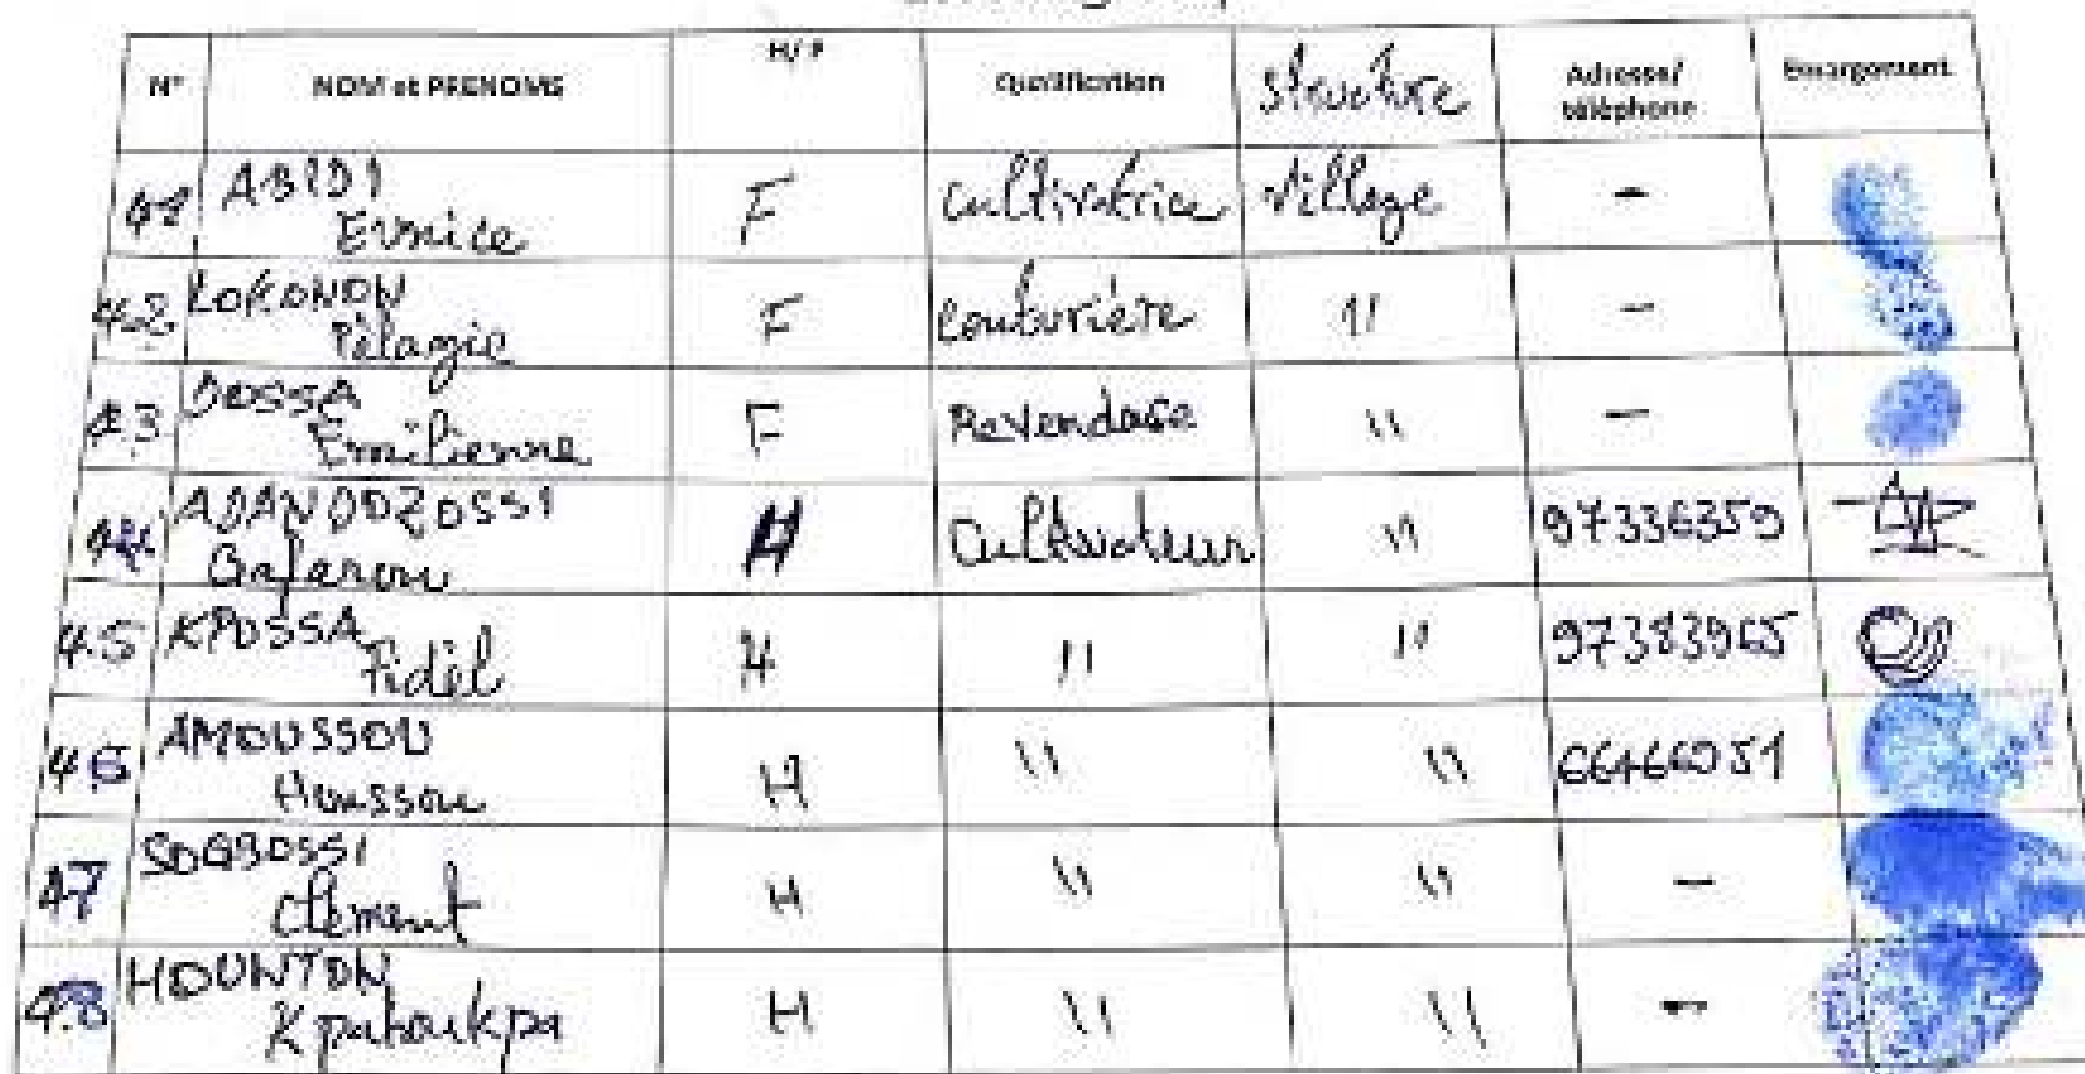 N° NOM et PRENOMS H/F Qualification Structure Adresse/
téléphone Emargement
41 ABIDI
Eunice F Cultivatrice Village -
42 LOKONON
Pélagie F Couturière 11 -
43 DOSSA
Emilienne F 11 -
44 ADANDOZOSSI
H Cultivateur 11 97336359
45 KPOSSA
Fidèl H 11 11 97383965
46 AMOUSSOU
Houssou H 11 11 66466051
47 SOGBOSSI
Clément H 11 11 -
48 HOUNTON
Kpatoukpa H 11 11 -